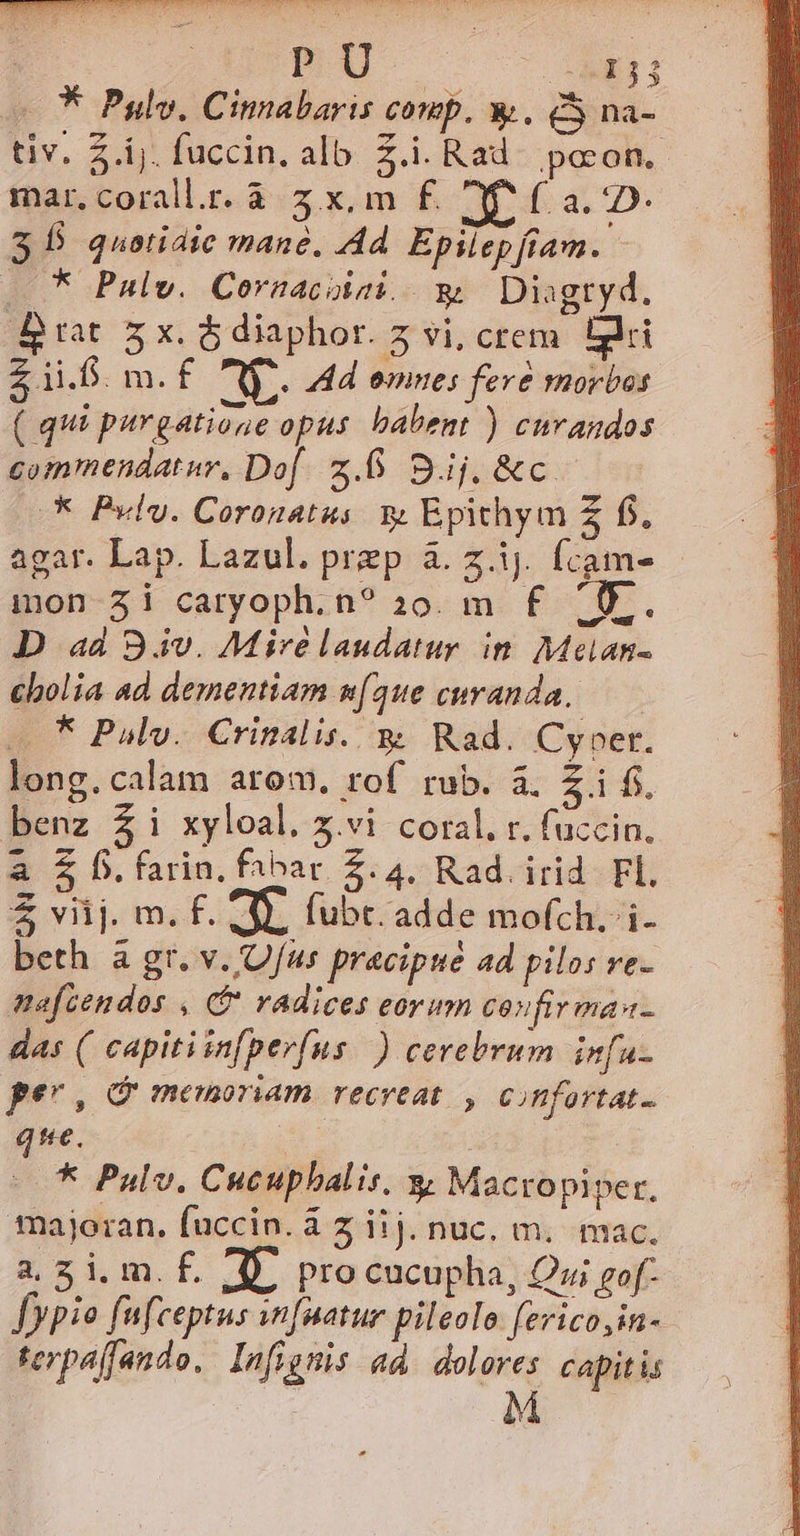 P U 133
* Pulv. Cinnabaris comp. ℞. ♁ na-
tiv. ℥.ij. ſuccin. alb ℥.i. Rad pœon.
mar. corall.r. ā ʒ x. m f. ſ a. D.
ʒ ß quotidie manè. Ad Epilepſiam.
* Pulv. Cornachini. ℞ Diagryd.
rat ʒ x. ♁ diaphor. ʒ vi. crem ri
℥ ii.ß. m. f . Ad omnes ferè morbos
( qui purgatione opus habent ) curandos
commendatur. Doſ ʒ.ß ℈.ij. &c
* Pulv. Coronatus ℞ Epithym ℥ ß.
agar. Lap. Lazul. præp ā. ʒ.ij. ſcam-
mon ʒ i caryoph. nº 20. m f .
D ad ℈ iv. Mirè laudatur in Melan-
cholia ad dementiam uſque curanda.
* Pulv. Crinalis. ℞ Rad. Cyper.
long. calam arom. roſ rub. ā. ℥.i ß.
benz ℥ i xyloal. ʒ.vi coral. r. ſuccin.
a ℥ ß. farin. fabar ℥.4. Rad. irid Fl.
℥ viij. m. f. ſubt. adde moſch. i-
beth ā gr. v. Uſus præcipuè ad pilos re-
naſcendos , & radices eorum confirman-
das ( capiti inſperſus ) cerebrum inſu-
per , & memoriam recreat , confortat-
que.
* Pulv. Cucuphalis. ℞ Macropiper.
majoran. ſuccin. ā ʒ iij. nuc. m. mac.
a. ʒ i. m. f. pro cucupha, Qui goſ-
ſypio ſuſceptus inſuatur pileolo ſerico, in-
terpaſſando. Inſignis ad dolores capitis
M